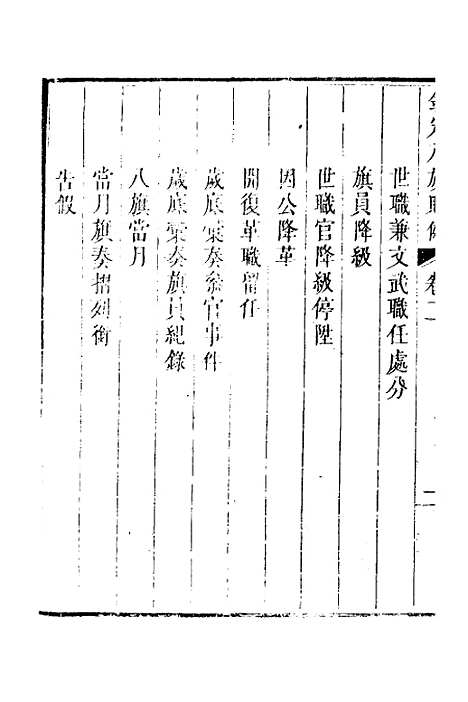 欽定八旗則例 卷二 二
世職兼文武職任處分
旗員降級
世職官降級停陞
因公降革
開復革職留任
歲底彙奏參官事件
歲底彙奏旗員紀錄
八旗當月
當月旗奏摺列銜
告假